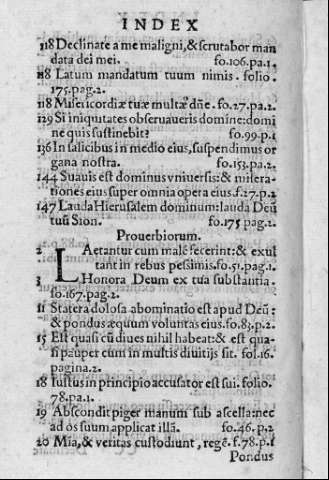 INDEX
118 Declinate a me maligni, & scrutabor man
data dei mei. fo.106.pa.1.
118 Latum mandatum tuum nimis. folio.
175.pag.2.
118 Misericordiæ tuæ multæ dñe. fo.27.pa.2.
129 Si iniquitates obseruaueris domine: domi
ne quis sustinebit? fo.99.p.1
136 In salicibus in medio eius, suspendimus or
gana nostra. fo.153.pa.2.
144 Suauis est dominus vniuersis: & misera-
tiones eius super omnia opera eius.f.27.p.2
147 Lauda Hierusalem dominum: lauda Deũ
tuũ Sion. fo.175 pag.2.
Prouerbiorum.
2 LAetantur cum malè fecerint: & exul
tant in rebus pessimis.fo.51.pag.1.
3 Honora Deum ex tua substantia.
fo.167.pag.2.
11 Statera dolosa abominatio est apud Deũ:
& pondus æquum voluntas eius.fo.83.p.2.
15 Est quasi cũ diues nihil habeat: & est qua-
si pauper cum in multis diuitijs sit. fol.16.
pagina.2.
18 Iustus in principio accusator est sui. folio.
78.pa.1.
19 Abscondit piger manum sub ascella: nec
ad os suum applicat illã. fo.46.p.2
20 Mia, & veritas custodiunt, regẽ.f.78.p.1
Pondus